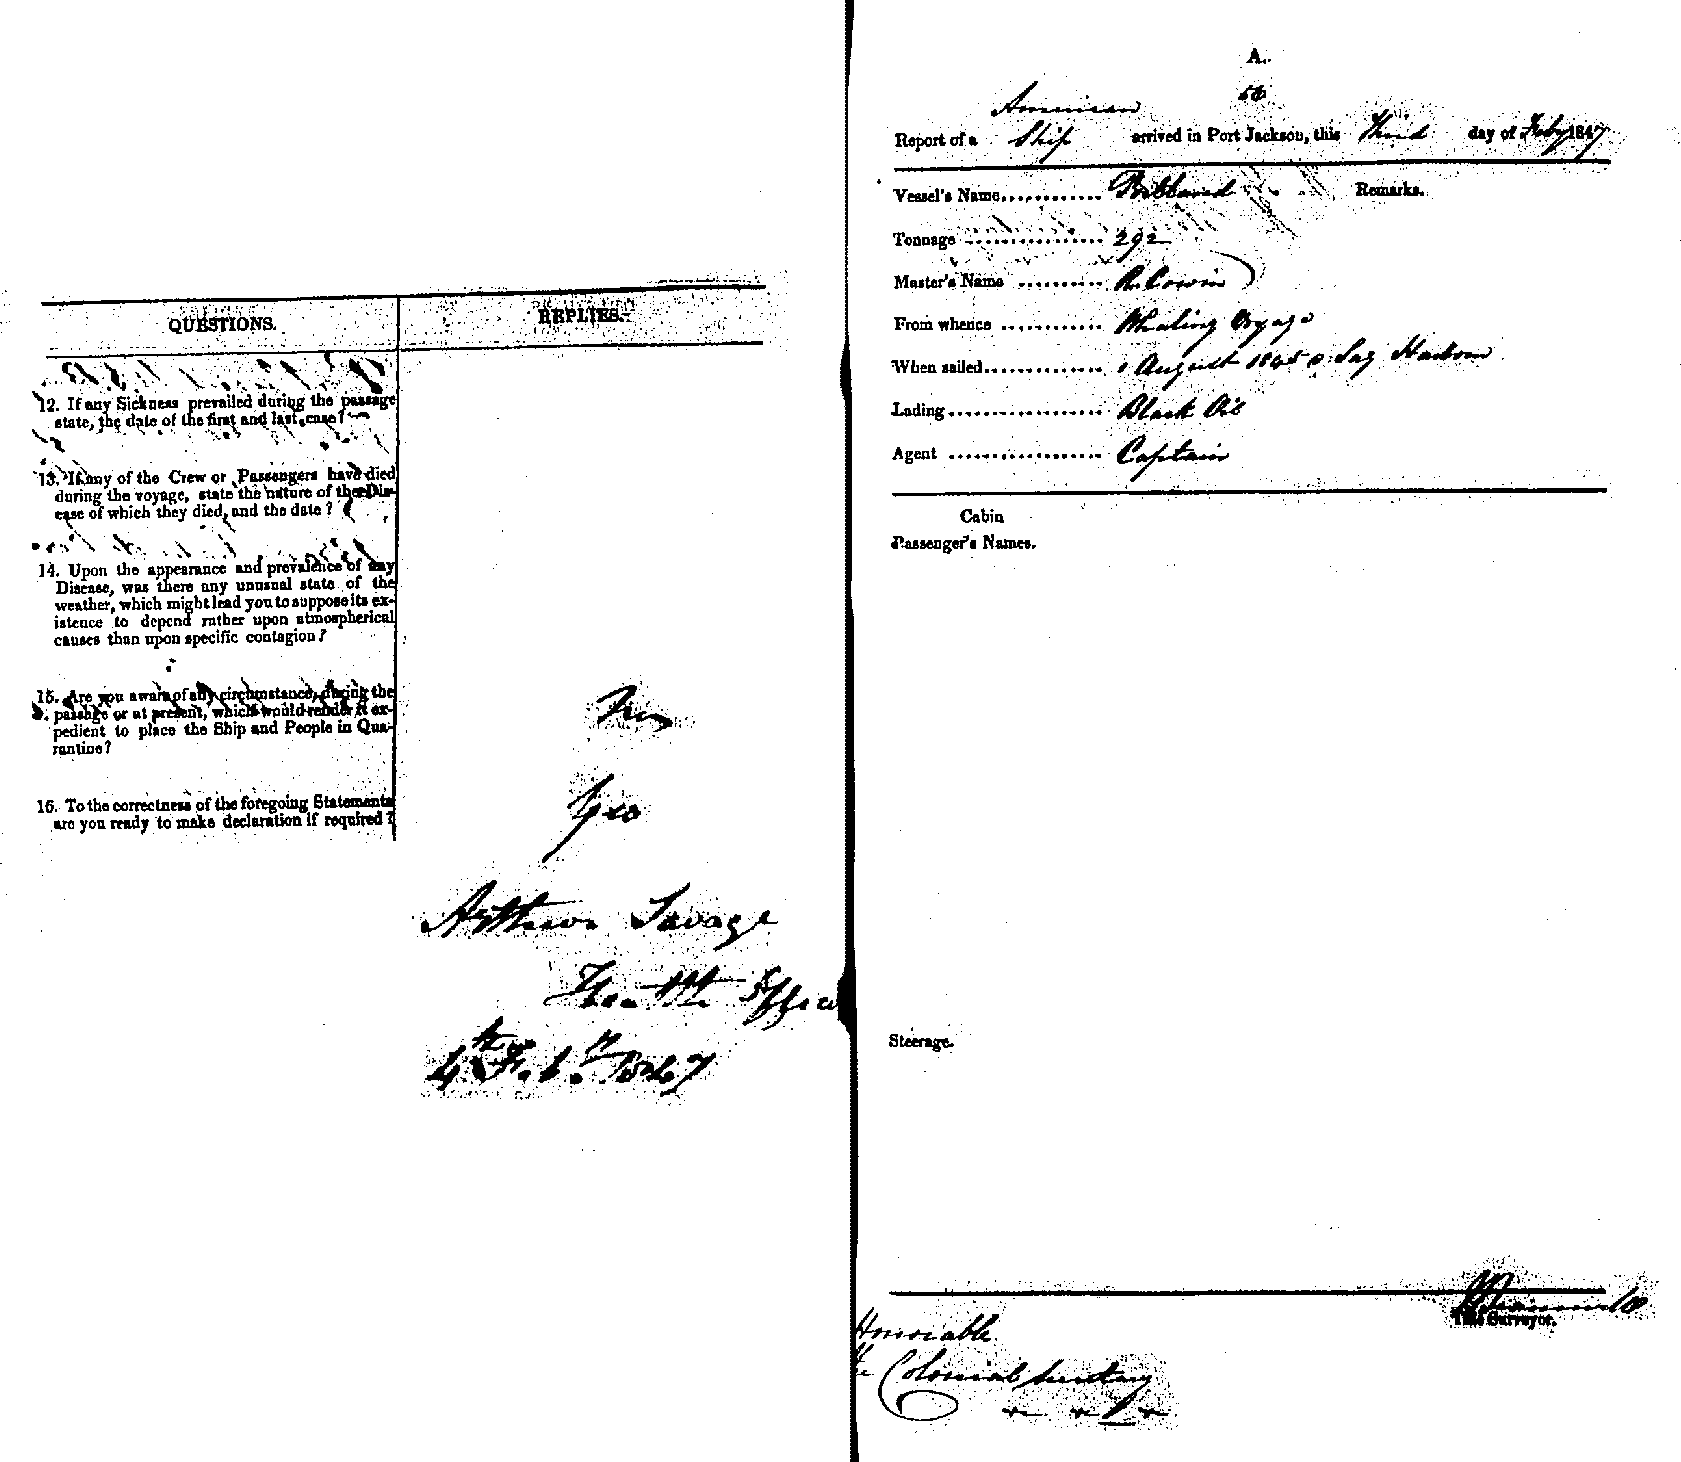 QUESTIONS.
REPLIES.
12. If any Sickness prevailed during the passage
state, the date of the first and last case?
13. If any of the Crew or Passengers have died
during the voyage, state the nature of the Dis-
ease of which they died, and the date?
14. Upon the appearance and prevalence of any
Disease, was there any unusual state of the
weather, which might lead you to suppose its ex-
istence to depend rather upon atmospherical
causes than upon specific contagion?
15. Are you aware of any circumstance, during the
passage or at present, which would render it ex-
pedient to place the Ship and People in Qua-
rantine?
16. To the correctness of the foregoing Statements
are you ready to make declaration if required?
Yes
Arthur Savage
Health Officer
4th Feby 1847
A.
American
Report of a Ship arrived in Port Jackson, this Third day of Feby 1847
Vessel's Name
Remarks.
Tonnage 292
Master's Name
From whence Whaling Voyage
When sailed August 1845 Sag Harbour
Lading Black Oil
Agent Captain
Cabin
Passenger's Names.
Steerage.
Tide Surveyor.
Honorable
The Colonial Secretary